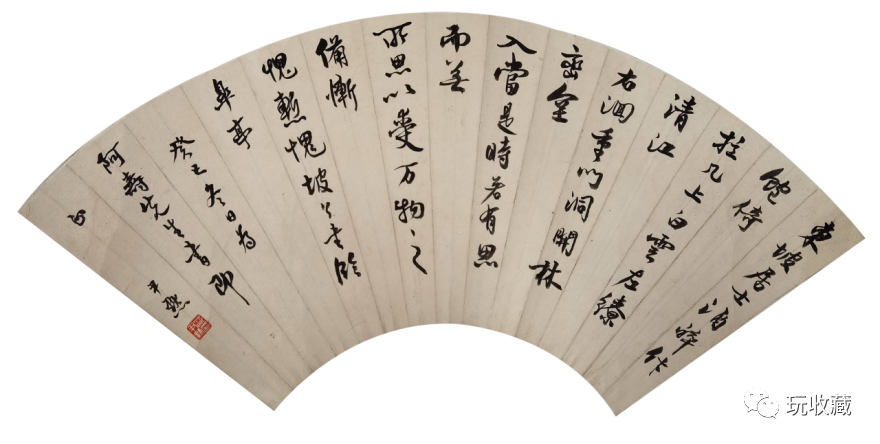 東坡居士酒醉飰
飽倚
於几上白雲左繚
清江
右洄重門洞開林
巒坌
入當是時若有思
而無
所思以受万物之
備慚
愧慙愧坡公書臨
皋亭
癸巳冬日為
阿壽先生書即
正
尹默
玩收藏